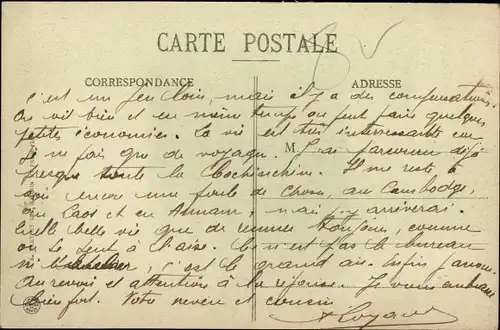 CARTE POSTALE
CORRESPONDANCE
ADRESSE
C'est un peu loin, mais il y a des compensations.
On vit bien et en même temps on peut faire quelques
petites économies. La vie est très intéressante car
je ne fais que de voyager. J'ai parcouru déjà
M
presque toute la Cochinchine. Il me reste à
voir encore une foule de choses, au Cambodge,
au Laos et en Annam, mais j'y arriverai.
Quelle belle vie que de remuer toujours, comme
on se sent à l'aise. Ce n'est pas le bureau
ni l'atelier, c'est le grand air. Enfin
au revoir et attention à la réponse. Je vous embrasse
bien fort. Votre neveu et cousin